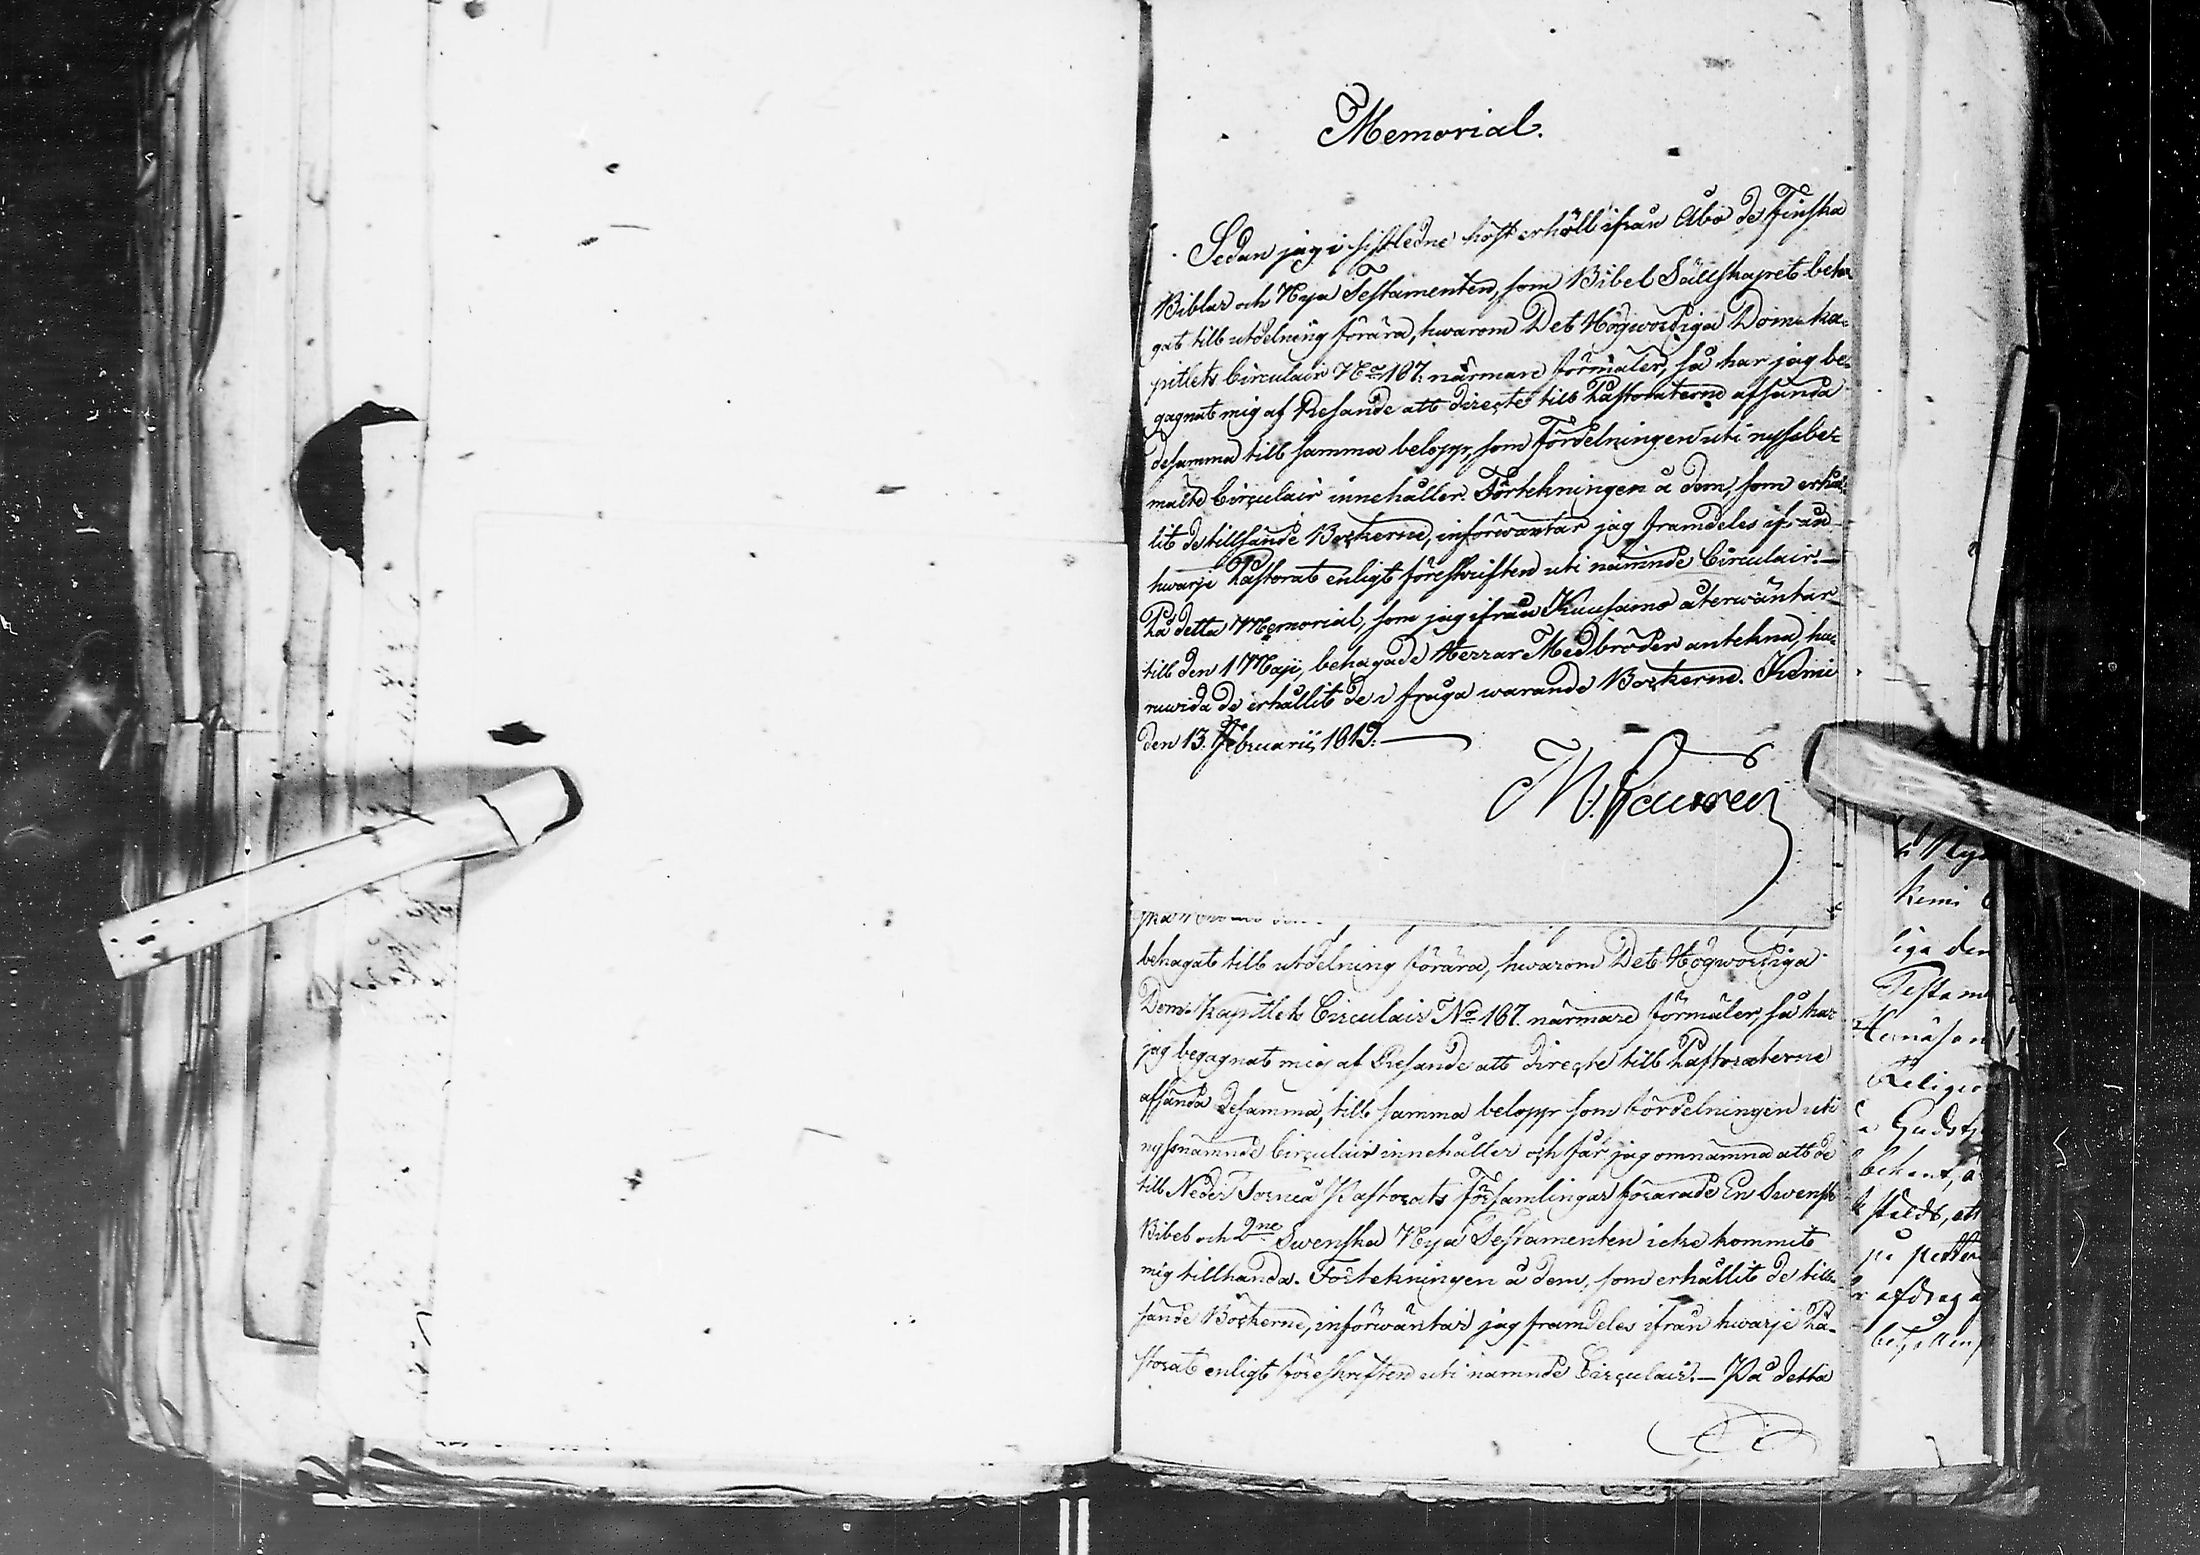 Memorial.
Sedan jag i sistledne höst erhöll ifrån Åbo de Finska
Biblar och Nya Testamenten, som Bibel Sällskapet beha
gat till utdelning förära, hwarom Det Högwördiga Dom-ka-
pitlets Circulair No 167. närmare förmäler, så har jag be-
gagnat mig af Resande att directe till Pastoraterne afsända
desamma till samma belopp, som Fördelningen uti nyssber-
mälte Circulair innehåller. Förtekningen å dem, som erhål-
lit de tillsände Böckerne, införwäntar jag framdeles ifrån
hwarje Pastorat enligt föreskriften uti nämnde Circulair.—
På detta Memorial, som jag ifrån Kuusamo återwäntar
till den 1 Maji, behagade Herrar Medbröder antekna, hu-
ruwida de erhållit de i fråga warande Böckerne. Kemi
den 13. Februarii, 1819.
behagat till utdelning förära, hwarom Det Högwördiga
Dom-Kapitlets Circulair No 167. närmare förmäler, så har
jag begagnat mig af Resande att directe till Pastoraterne
afsända desamma, till samma belopp som fördelningen uti
nyssnämnde Circulair innehåller och får jag omnämna att de
till Neder Torneå Pastorats Församlingar förärade En Swensk
Bibel och 2ne Swenska Nya Testamenten icke kommit
mig tillhanda. Förtekningen å dem, som erhållit de till-
sände Böckerne, införwäntar jag framdeles ifrån hwarje Pa-
storat enligt föreskriften uti nämnde Circulair.— På detta
Kemi
liga den
Testame
Religio
Gudstj
bekant, a
afdrag af